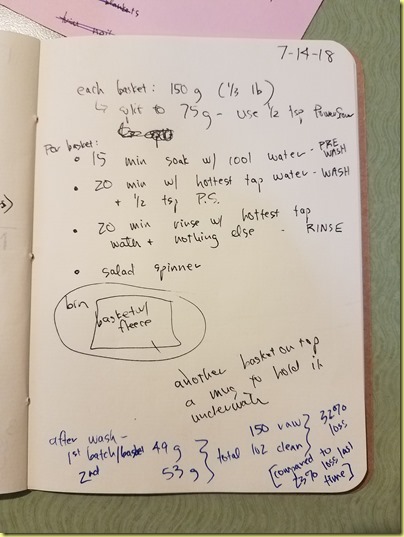 blankets
7-14-18
each basket: 150 g (1/3 lb)
↳ split to 75g - use 1/2 tsp Power Scour
Per basket:
• 15 min soak w/ cool water - PRE WASH
• 20 min w/ hottest tap water - WASH
+ 1/2 tsp P.S.
• 20 min rinse w/ hottest tap
water + nothing else - RINSE
• salad spinner
bin
basket w/
fleece
another basket on top
a mug to hold it
underwater
after wash -
1st batch/basket 49 g
2nd 53 g
total 150 raw
102 clean
32% loss
[compared to
loss last
time]